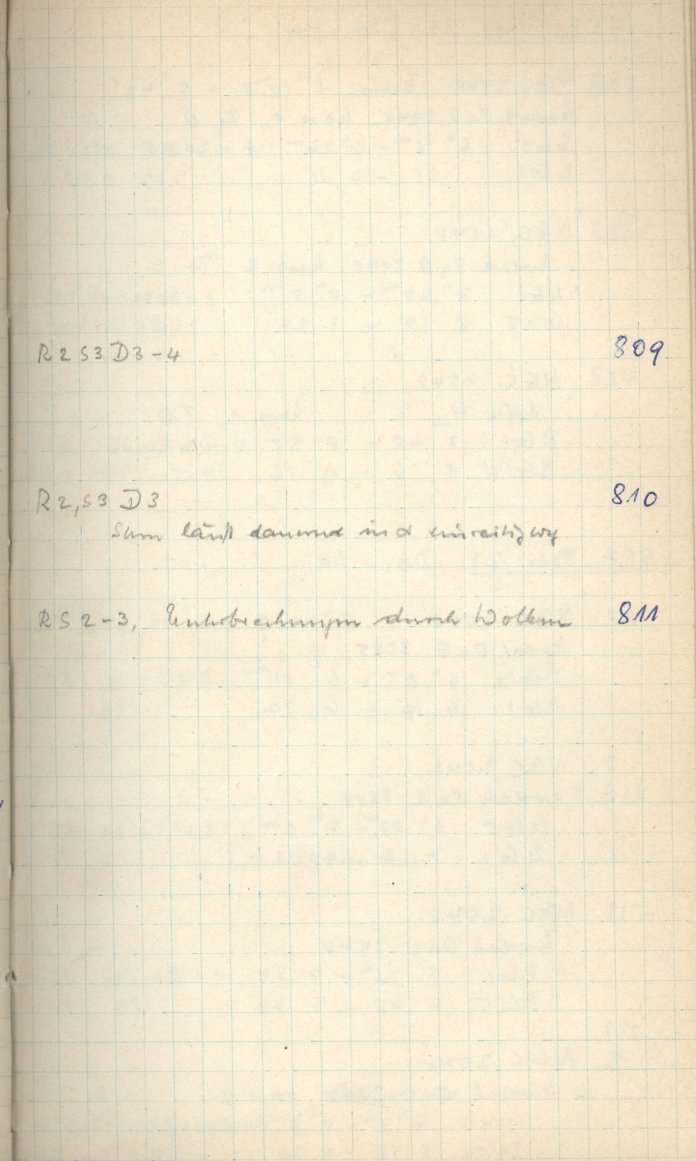 R2 S3 D3-4 809
R2, S3 D3 810
Stern läuft dauernd in α einseitig weg
RS 2-3, Unterbrechungen durch Wolken 811